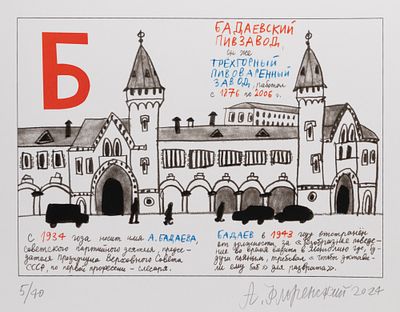 Б
БАДАЕВСКИЙ
ПИВЗАВОД,
он же
ТРЁХГОРНЫЙ
ПИВОВАРЕННЫЙ
ЗАВОД, работал
с 1876 по 2006 г.
С 1934 года носит имя А. БАДАЕВА,
советского партийного деятеля, предсе-
дателя Президиума Верховного Совета
СССР, по первой профессии – слесаря.
БАДАЕВ в 1943 году отстранён
от должности за «безобразное поведе-
ние во время визита в Монголию где, бу-
дучи пьяным, требовал, чтобы достави-
ли ему баб» для разврата».
5/40
А. Флоренский 2024